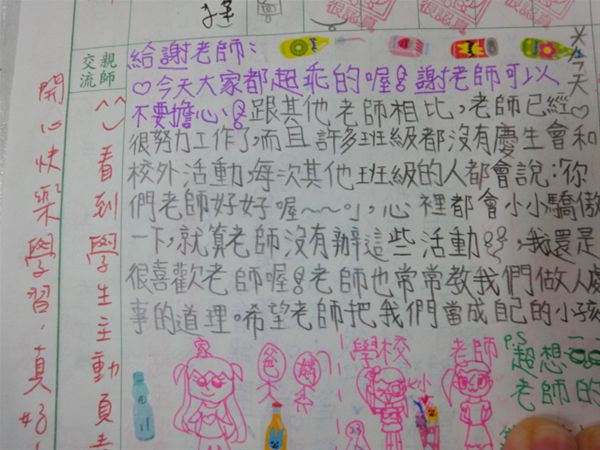 給謝老師:
♡今天大家都超乖的喔!謝老師可以
不要擔心!跟其他老師相比,老師已經♡
很努力工作了,而且許多班級都沒有慶生會和
校外活動,每次其他班級的人都會說:「你
們老師好好喔~~。」,心裡都會小小驕傲
一下,就算老師沒有辦這些活動,我還是
很喜歡老師喔!老師也常常教我們做人處
事的道理。希望老師把我們當成自己的小孩
今天
親師
交流
看到學生主動負責
開心快樂學習.真好
家
爸
媽
學校
老師
P.S
超想
老師的
很認真